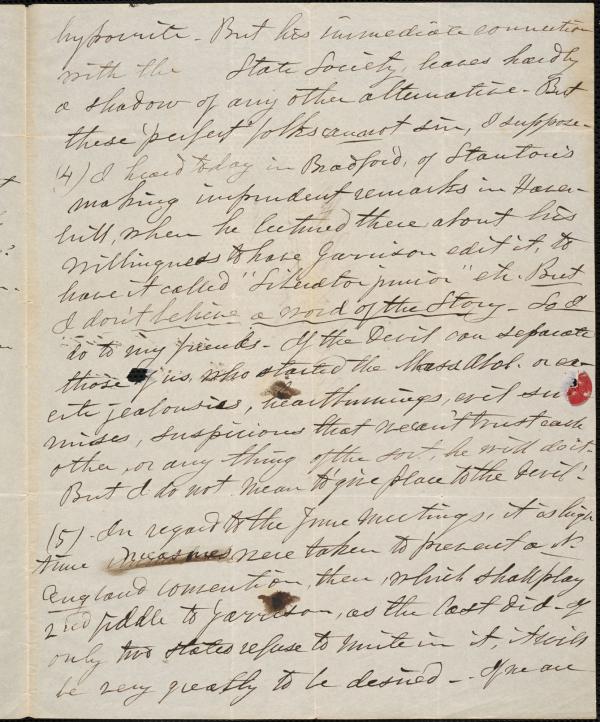 hypocrite - But his immediate connection
with the State Society, leaves hardly
a shadow of any other alternative - But
these 'perfect' folks cannot sin, I suppose -
(4) I heard today in Bradford, of Stanton's
making imprudent remarks in Haver-
hill, when he lectured there about his
willingness to have Garrison edit it, to
have it called "Liberator junior" etc. But
I don't believe a word of the Story - So I
do to my friends - If the Devil can separate
those of us, who started the Mass Abol. or ex-
cite jealousies, heartburnings, evil sur
mises, suspicions that we can't trust each
other, or any thing of the sort, he will do it -
But I do not mean to 'give place to the Devil'.
(5) - In regard to the June meetings, it is high
time measures were taken to prevent a N.
England convention, then, which shall play
2nd fiddle to Garrison, as the last did - If
only two states refuse to unite in it, it will
be very greatly to be desired - - If we are